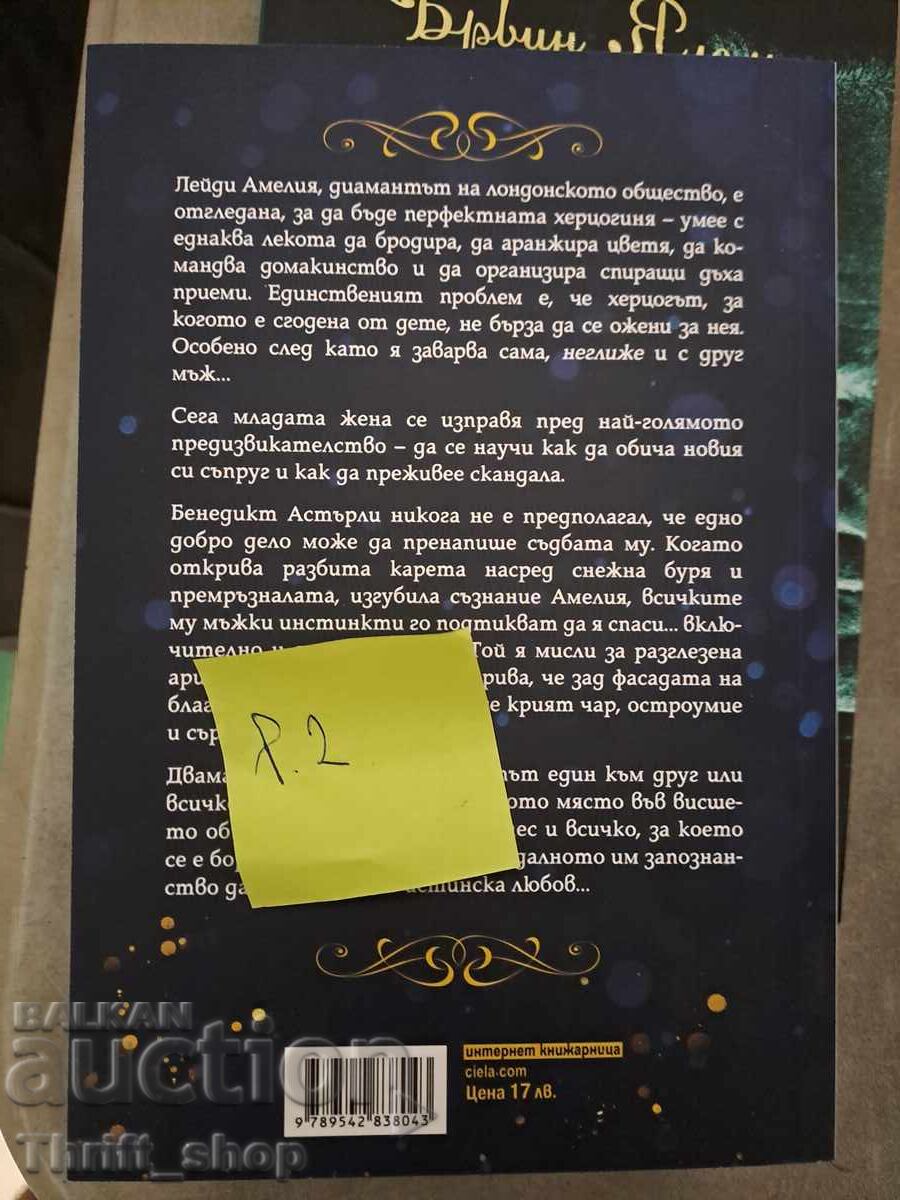 Лейди Амелия, диамантът на лондонското общество, е
отгледана, за да бъде перфектната херцогиня – умее с
еднаква лекота да бродира, да аранжира цветя, да ко-
мандва домакинство и да организира спиращи дъха
приеми. Единственият проблем е, че херцогът, за
когото е сгодена от дете, не бърза да се ожени за нея.
Особено след като я заварва сама, неглиже и с друг
мъж...
Сега младата жена се изправя пред най-голямото
предизвикателство – да се научи как да обича новия
си съпруг и как да преживее скандала.
Бенедикт Астърли никога не е предполагал, че едно
добро дело може да пренапише съдбата му. Когато
открива разбита карета насред снежна буря и
премръзналата, изгубила съзнание Амелия, всичките
му мъжки инстинкти го подтикват да я спаси... вклю-
чително Той я мисли за разглезена
че зад фасадата на
крият чар, остроумие
и
един към друг или
място във висше-
то и всичко, за което
се е им запознан-
ство любов...
BALKAN
auction
Thrift_shop
9 789542 838043
интернет книжарница
ciela.com
Цена 17 лв.